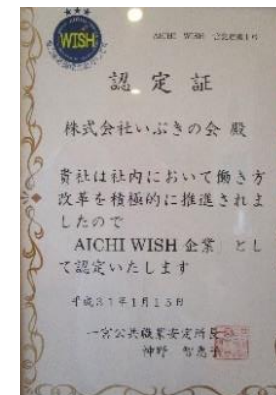 WISH
AICHI WISH
認定証
株式会社いぶきの会 殿
貴社は社内において働き方
改革を積極的に推進されま
したので
「AICHI WISH 企業」とし
て認定いたします
平成31年1月15日
一宮公共職業安定所長
神野 智恵子